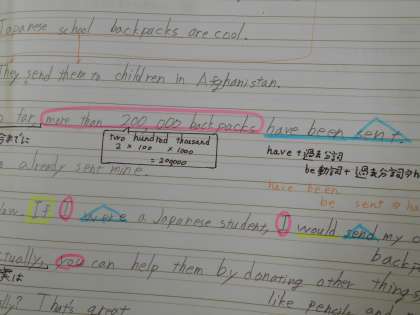 Japanese school backpacks are cool.
They send them to children in Afghanistan.
far more than 200,000 backpacks have been sent.
two hundred thousand
2 × 100 × 1000
= 200000
have + 過去分詞
be動詞 + 過去分詞
have been
be sent
already sent mine.
If I were a Japanese student, I would send my
Actually, you can help them by donating other things
like pencils and
That's great